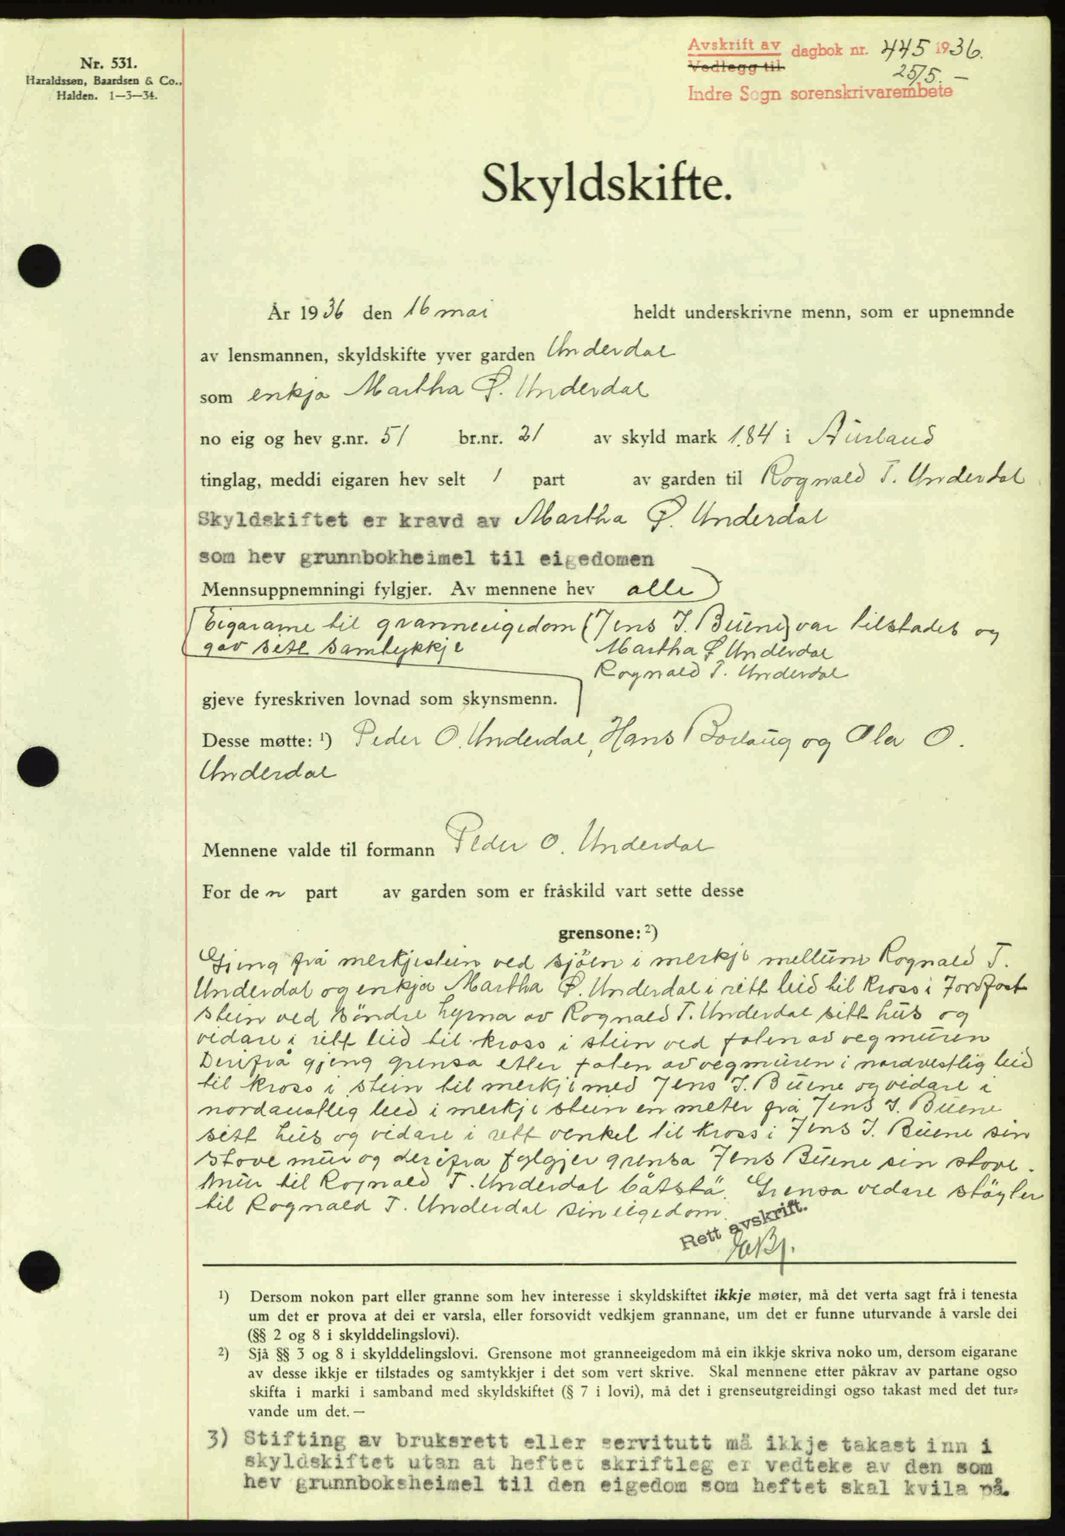 Nr. 531.
Haraldssøn, Baardsen & Co.,
Halden. 1—3—34.
Avskrift av
Vedlegg til
dagbok nr. 445 1936.
25/5. —
Indre Sogn sorenskrivarembete
Skyldskifte.
År 1936 den 16 mai heldt underskrivne menn, som er upnemnde
av lensmannen, skyldskifte yver garden Underdal
som enkja Martha Ø. Underdal
no eig og hev g.nr. 51 br.nr. 21 av skyld mark 1.84 i Aurland
tinglag, meddi eigaren hev selt 1 part av garden til Rognald T. Underdal
Skyldskiftet er kravd av Martha Ø. Underdal
som hev grunnbokheimel til eigedomen
Mennsuppnemningi fylgjer. Av mennene hev alle
Eigarane til granneeigedom (Jens J. Buene) var tilstades og
gav sitt samtykkje Martha Ø Underdal
Rognald T. Underdal
gjeve fyreskriven lovnad som skynsmenn.
Desse møtte: ¹) Peder O. Underdal, Hans Borlaug og Ola O.
Underdal
Mennene valde til formann Peder O. Underdal
For den part av garden som er fråskild vart sette desse
grensone: ²)
Gjeng frå merkjestein ved sjöen i merkje mellum Rognald T.
Underdal og enkja Martha Ø. Underdal i rett leid til kross i Jordfast
stein ved söndre hyrna av Rognald T. Underdal sitt hus og
vidare i rett leid til kross i stein ved foten av vegmuren
Derifrå gjeng grensa etter foten av vegmuren i nordvestlig leid
til kross i stein til merkje med Jens J. Buene og vidare i
nordaustlig leid i merkje stein en meter frå Jens J. Buene
sitt hus og vidare i rett venkel til kross i Jens J. Buene sin
stove mur og derifra fylgjer grensa Jens Buene sin stove-
mur til Rognald T. Underdal båtstö. Grensa vidare stöyter
til Rognald T. Underdal sin eigedom.
Rett avskrift.
¹) Dersom nokon part eller granne som hev interesse i skyldskiftet ikkje møter, må det verta sagt frå i tenesta
um det er prova at dei er varsla, eller forsovidt vedkjem grannane, um det er funne uturvande å varsle dei
(§§ 2 og 8 i skylddelingslovi).
²) Sjå §§ 3 og 8 i skylddelingslovi. Grensone mot granneeigedom må ein ikkje skriva noko um, dersom eigarane
av desse ikkje er tilstades og samtykkjer i det som vert skrive. Skal mennene etter påkrav av partane ogso
skifta i marki i samband med skyldskiftet (§ 7 i lovi), må det i grenseutgreidingi ogso takast med det tur-
vande um det. —
3) Stifting av bruksrett eller servitutt må ikkje takast inn i
skyldskiftet utan at heftet skriftleg er vedteke av den som
hev grunnboksheimel til den eigedom som heftet skal kvila på.